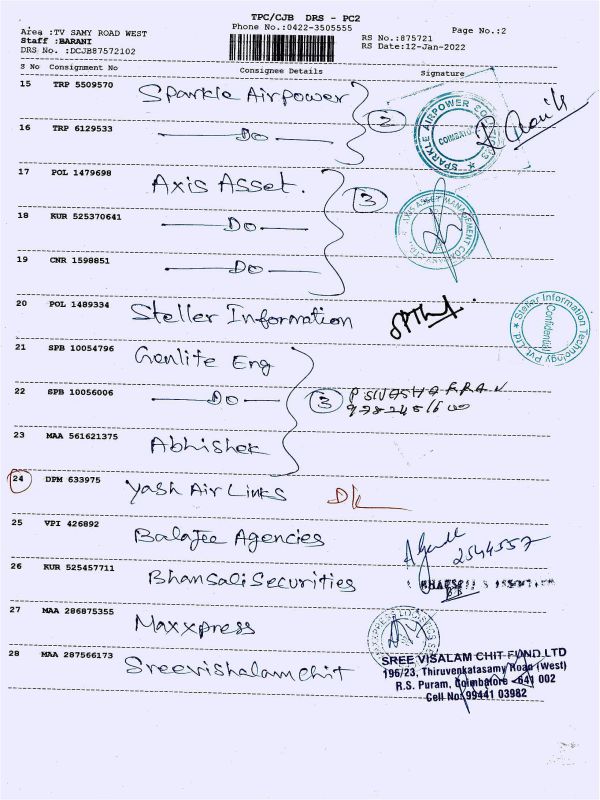 TPC/CJB DRS - PC2
Phone No.:0422-3505555
Page No.:2
Area :TV SAMY ROAD WEST
Staff :BARANI
DRS No. :DCJB87572102
RS No.:875721
RS Date:12-Jan-2022
S No Consignment No Consignee Details Signature
15 TRP 5509570 Sparkle Airpower
2
SPARKLE AIRPOWER
COIMBATORE
16 TRP 6129533 Do
17 POL 1479698 Axis Asset.
3
AXIS ASSET MANAGEMENT COMPANY
18 KUR 525370641 Do
19 CNR 1598851 Do
20 POL 1489334 Steller Information
Steller Information Technology Pvt. Ltd.
Confidential
21 SPB 10054796 Genlite Eng
22 SPB 10056006 Do
3
23 MAA 561621375 Abhishek
24 DPM 633975 Yash Air Links DL
25 VPI 426892 Balajee Agencies
2544557
26 KUR 525457711 Bhansali Securities
27 MAA 286875355 Maxxpress
28 MAA 287566173 Sreevishalam chit
SREE VISALAM CHIT FUND LTD
196/23, Thiruvenkatasamy Road (West)
R.S. Puram, Coimbatore -641 002
Cell No: 99441 03982